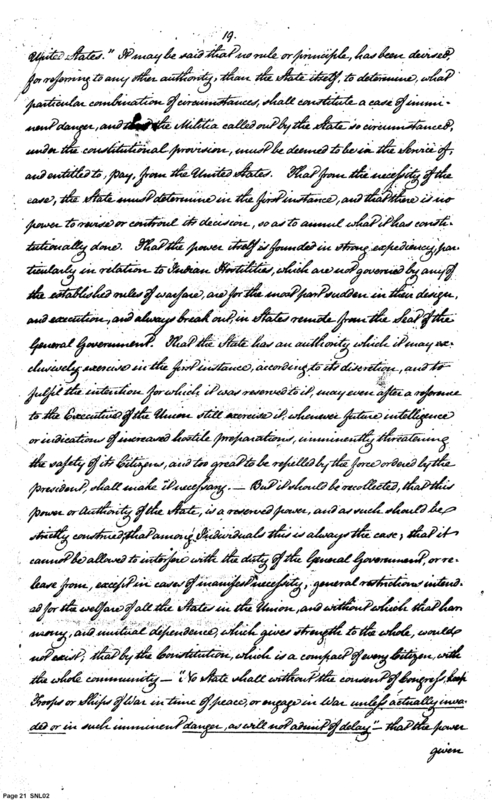 19.
United States." It may be said that no rule or principle, has been devised,
for referring to any other authority, than the State itself, to determine, what
particular combination of circumstances, shall constitute a case of immi-
nent danger, and the Militia called out by the State so circumstanced,
under the constitutional provision, must be deemed to be in the Service of,
and entitled to, pay, from the United States. That from the necessity of the
case, the State must determine in the first instance, and that there is no
power to revise or controul its decision, so as to annul what it has consti-
tutionally done. That the power itself is founded in strong expediency, par-
ticularly in relation to Indian Hostilities, which are not governed by any of
the established rules of warfare, are for the most part sudden in their design,
and execution, and always break out, in States remote from the Seat of the
General Government. That the State has an authority which it may ex-
clusively exercise in the first instance, according to its discretion, and to
fulfil the intention for which it was reserved to it, may even after a reference
to the Executive of the Union still exercise it, whenever future intelligence
or indications of increased hostile preparations, imminently threatening
the safety of its Citizens, and too great to be repelled by the force ordered by the
president, shall make it necessary. — But it should be recollected, that this
power or authority of the State, is a reserved power, and as such should be
strictly construed, that among Individuals this is always the case; that it
cannot be allowed to interfere with the duty of the General Government, or re-
lease from, except in cases of manifest necessity, general restrictions intend-
ed for the welfare of all the States in the Union, and without which that har
mony, and mutual dependence, which gives strength to the whole, would
not exist; that by the Constitution, which is a compact of every Citizen, with
the whole community — "No State shall without the consent of Congress, keep
Troops or Ships of War in time of peace, or engage in War unless actually inva-
ded or in such imminent danger, as will not admit of delay" — that the power
given
Page 21 SNL02